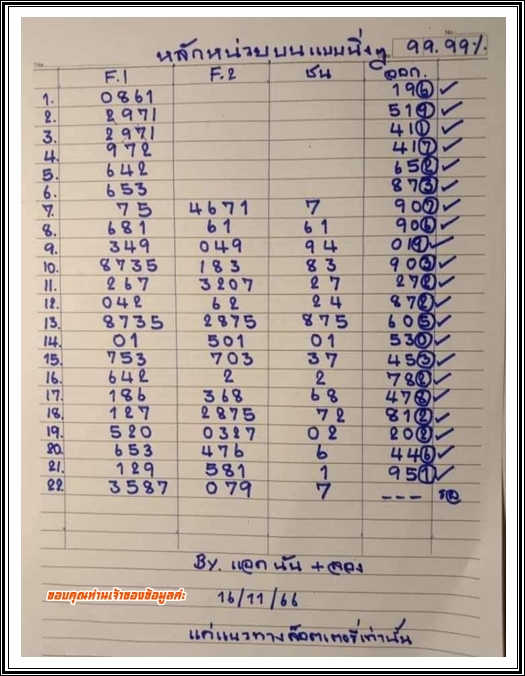 หลักหน่วยบนแบบนิ่งๆ 99.99%
No. No.
F.1 F.2 ชน ออก.
1. 0861 196 ✓
2. 2971 519 ✓
3. 2971 411 ✓
4. 972 417 ✓
5. 642 652 ✓
6. 653 873 ✓
7. 75 4671 7 907 ✓
8. 681 61 61 906 ✓
9. 349 049 94 019 ✓
10. 8735 183 83 903 ✓
11. 267 3207 27 272 ✓
12. 042 62 24 872 ✓
13. 8735 2875 875 605 ✓
14. 01 501 01 530 ✓
15. 753 703 37 453 ✓
16. 642 2 2 782 ✓
17. 186 368 68 478 ✓
18. 127 2875 72 812 ✓
19. 520 0327 02 202 ✓
20. 653 476 6 446 ✓
21. 129 581 1 951 ✓
22. 3587 079 7 --- รอ
BY. แอดนัน + ลอง
ขอบคุณท่านเจ้าของข้อมูลค่ะ
16/11/66
แค่แนวทางล็อตเตอรี่เท่านั้น